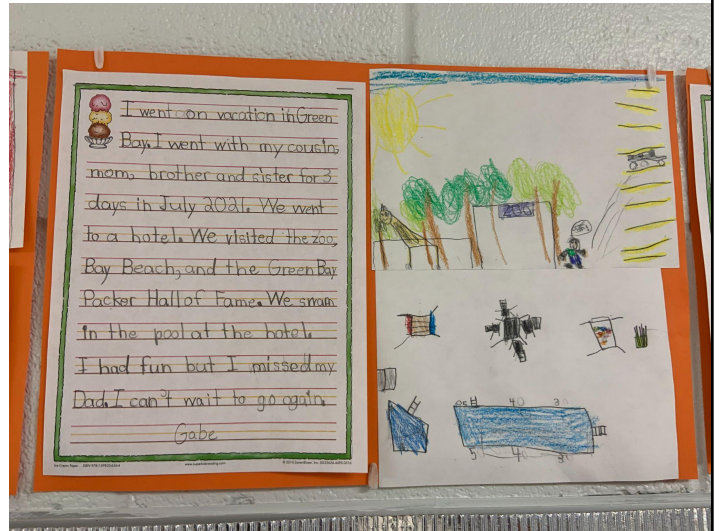 I went on vacation in Green
Bay. I went with my cousin,
mom, brother and sister for 3
days in July 2021. We went
to a hotel. We visited the zoo,
Bay Beach, and the Green Bay
Packer Hall of Fame. We swam
in the pool at the hotel.
I had fun but I missed my
Dad. I can't wait to go again.
Gabe
ZOO
40
5 40